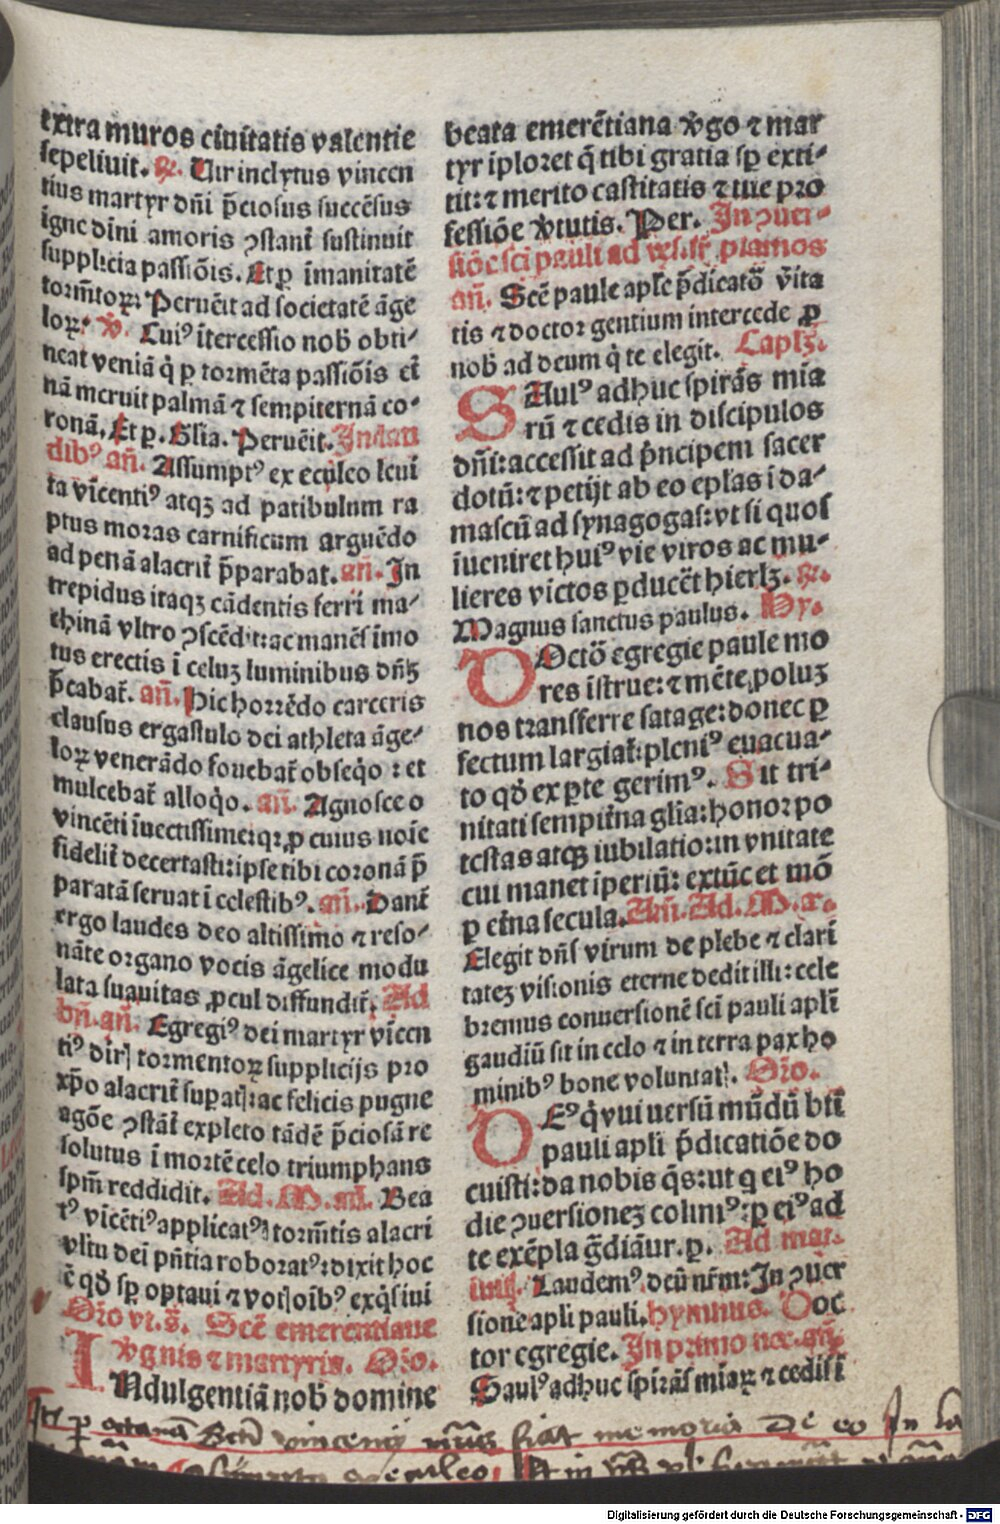 extra muros ciuitatis valentie
sepeliuit. ꝶ. Uir inclytus vincen
tius martyr dn̄i p̄ciosus succēsus
igne dini amoris ꝯstant̄ sustinuit
supplicia passiōis. Et ꝑ īmanitatē
torm̄toꝝ: Peruēit ad societatē āge
loꝝ: ꝟ. Cuiꝰ ītercessio nob̄ obti⸗
neat veniā q̇ ꝑ tormēta passiōis et̄
nā meruit palmā ⁊ sempiternā co⸗
ronā. Et ꝑ. Glia. Peruēit. In lau
dibꝰ an̄. Assumptꝰ ex eculeo leui
ta vīcentiꝰ atqꝫ ad patibulum ra
ptus moras carnificum arguēdo
ad penā alacrit̄ p̄parabat. an̄. In
trepidus itaqꝫ cādentis ferri ma⸗
chinā vltro ꝯscēdit: ac manēs īmo
tus erectis ī celuꝫ luminibus dn̄ꝫ
p̄cabat̄. an̄. Hic horrēdo carceris
clausus ergastulo dei athleta āge⸗
loꝝ venerādo fouebat̄ obseq̇o : et
mulcebat̄ alloq̇o. an̄. Agnosce o
vincēti īuectissime: qꝛ ꝓ cuius noīe
fidelit̄ decertasti: ipse tibi coronā p̄
paratā seruat ī celestibꝰ. an̄. Dant̄
ergo laudes deo altissimo ⁊ reso⸗
nāte organo vocis āgelice modu
lata suauitas ꝓcul diffundit̄. Ad
bn̄. an̄. Egregiꝰ dei martyr vīcen
tiꝰ dirꝭ tormentoꝝ supplicijs pro
xp̄o alacrit̄ supatꝭ: ac felicis pugne
agōe ꝯstāt̄ expleto tādē p̄ciosā re
solutus ī mortē celo triumphans
spm̄ reddidit. Ad. M. an̄. Bea
tꝰ vīcētiꝰ applicatꝰ torm̄tis alacri
vltu dei pn̄tia roboratꝰ: dixit hoc
ē qd̄ sp̄ optaui ⁊ votꝭ oībꝰ exq̇siui
Orō vt. s̄. Scē emerentiane
v̄gnis ⁊ martyris. Orō.
INdulgentiā nob̄ domine
beata emerētiana v̄go ⁊ mar
tyr īploret q̄ tibi grata sp̄ exti⸗
tit: ⁊ merito castitatis ⁊ tue pro
fessiōe v̄tutis. Per. In ꝯuer⸗
siōe sci pauli ad vs. sr̄ plamos
an̄. Scē paule aplē p̄dicatō v̄ita
tis ⁊ doctor gentium intercede ꝓ
nob̄ ad deum q̇ te elegit. Caplꝫ.
SAulꝰ adhuc spirās mīa
rū ⁊ cedis in discipulos
dn̄i: accessit ad p̄ncipem sacer
dotū: ⁊ petijt ab eo eplas ī da⸗
mascū ad synagogas: vt si quos
īueniret huiꝰ vie viros ac mu⸗
lieres victos ꝑducēt hierlꝫ. ꝶ.
Magnus sanctus paulus. Hy.
DOctō egregie paule mo
res īstrue: ⁊ mēte poluꝫ
nos transferre satage: donec ꝑ
fectum largiat̄: pleniꝰ euacua⸗
to qd̄ ex ꝑte gerimꝰ. Sit tri⸗
nitati sempit̄na glīa: honor po
testas atqꝫ iubilatio: in vnitate
cui manet īperiū: extūc et mō
ꝑ et̄na secula. Am̄. Ad. M. a.
Elegit dn̄s virum de plebe ⁊ clari
tateꝫ visionis eterne dedit illi: cele
bremus conuersionē sci pauli apli
gaudiū sit in celo ⁊ in terra pax ho
minibꝰ bone voluntatꝭ. Orō.
DEꝰ q̇ vniuersū mūdū bt̄i
pauli apli p̄dicatiōe do
cuisti: da nobis q̄s: ut q eiꝰ ho
die ꝯuersioneꝫ colimꝰ: ꝑ eiꝰ ad
te exēpla ḡdiāur. ꝑ. Ad mat.
inuit. Laudemꝰ deū nr̄m: In ꝯuer
sione apli pauli. hymnus. Doc
tor egregie. In primo noc. an̄.
Saulꝰ adhuc spirās miaꝝ ⁊ cedis ī
fiat memoria De eo In
Digitalisierung gefördert durch die Deutsche Forschungsgemeinschaft - DFG